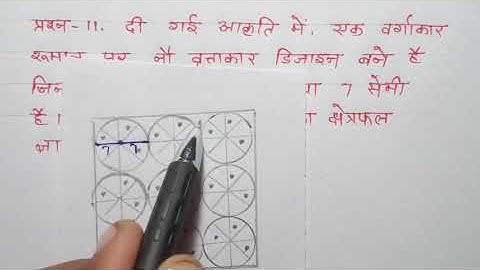 प्रश्न-11. दी गई आकृति में, एक वर्गाकार
पर नौ वृत्ताकार डिजाइन बने है
7 सेमी
है। क्षेत्रफल
7